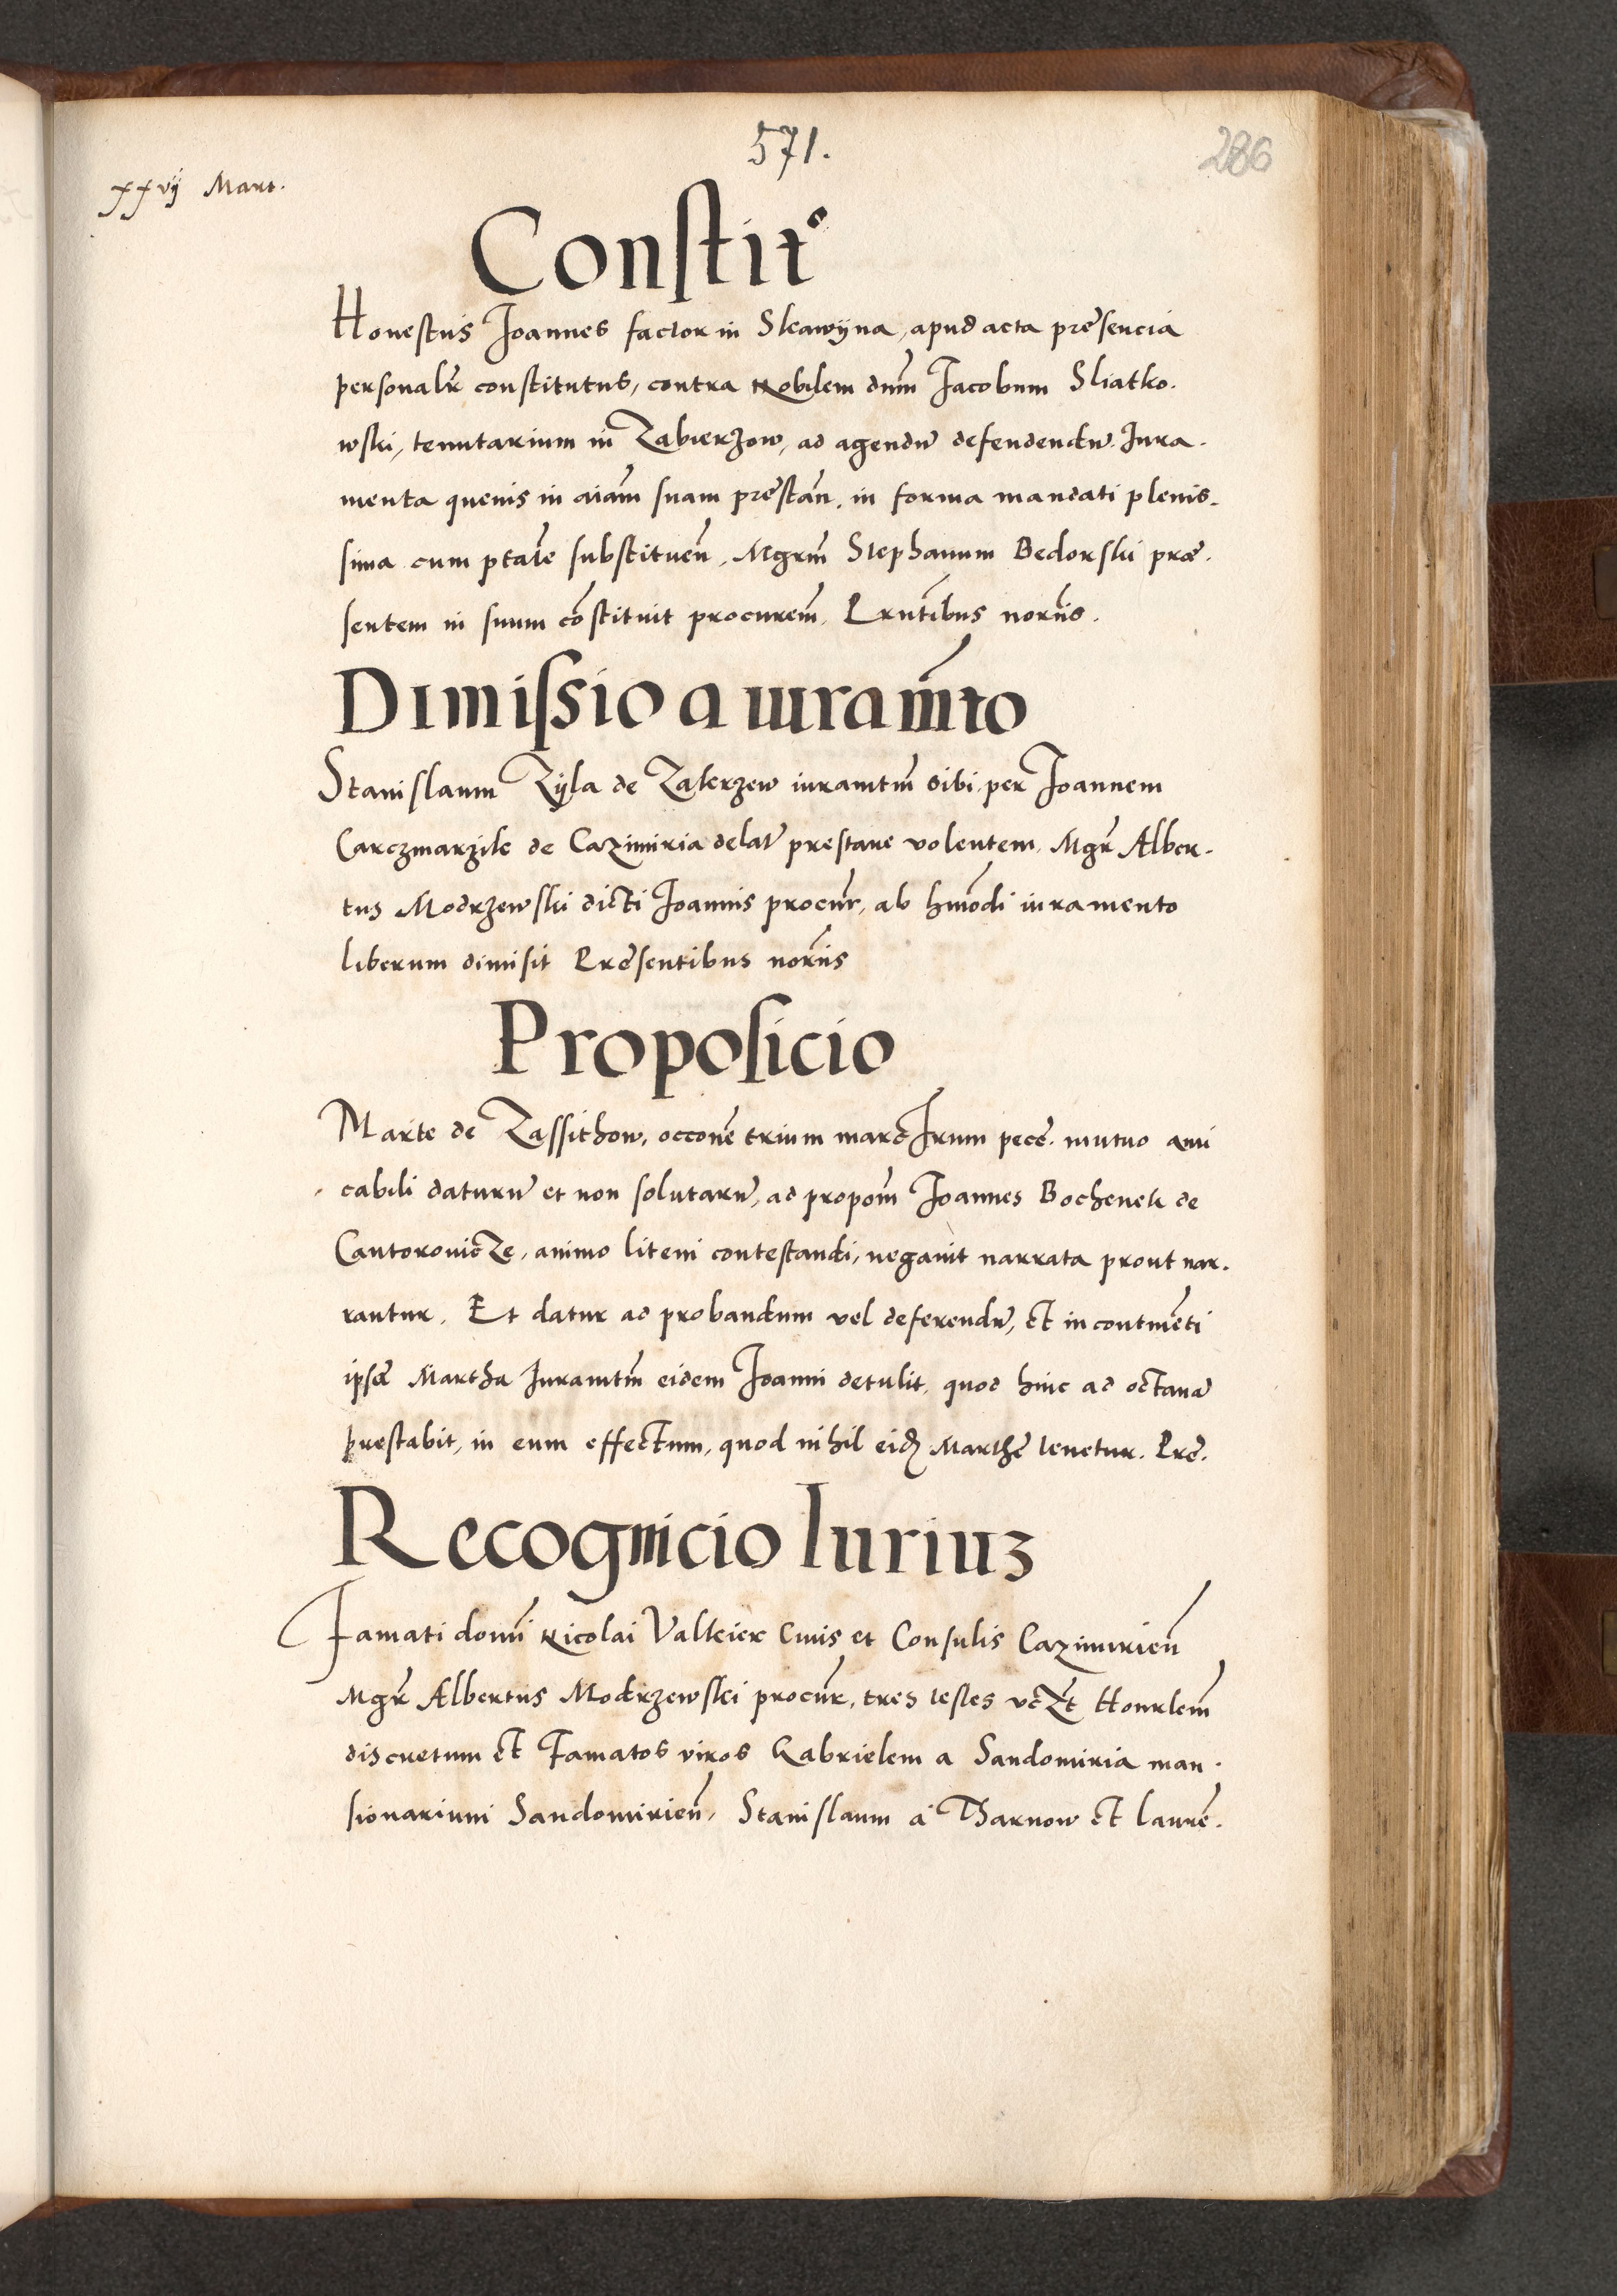 571.
286
xxvij Mart.
Constit᷒
Honestus Joannes factor in Skawyna, apud acta presencia
personalr̃ constitutus, contra Nobilem dnm̃ Jacobum Sliatko.
wski, tenutarium in Zabierzow, ad agendũ defendendũ Jura.
menta quevis in aiam̃ suam prestan̄. in forma mandati plenis.
sima cum ptate substituen̄, Mgrm̃ Stephanum Bedorski præ.
sentem in suum cõstituit procurem̃, Prntibus norijs.
Dimissio a iuramto
Stanislaum Zyla de Zakrzew iuramtm̃ sibi per Joannem
Carczmarzik de Cazimiria delat̃ prestare volentem, Mgr̃ Alber.
tus Modrzewski dicti Joannis procur̃, ab hmõdi iuramento
liberum dimisit Presentibus norijs
Proposicio
Marte de Zassithow, occone trium marc̃ Irum pecẽ. mutuo ami
cabili daturũ et non solutarũ, ad propom̃ Joannes Bochenek de
Cantorovicze, animo litem contestandi, negavit narrata prout nar.
rantur, Et datur ad probandum vel deferendũ, et incontinẽti
ipsa Martha Juramtm̃ eidem Joanni detulit, quod hinc ad octavã
prestabit, in eum effectum, quod nihil eidẽ Marthe tenetur. Pre.
Recognicio Iuriuz
Famati domi Nicolai Valkier Civis et Consulis Cazimirien̄
Mgr̃ Albertus Modrzewski procur̃, tres testes vczt Honrlem̃
discretum et Famatos viros Gabrielem a Sandomiria man.
sionarium Sandomirien̄, Stanislaum a Tharnow et Laurẽ.